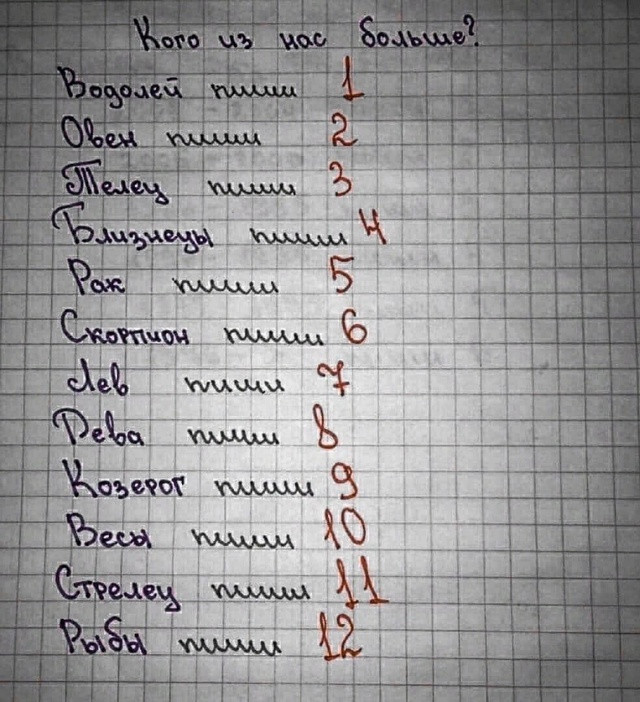 Кого из нас больше?
Водолей пиши 1
Овен пиши 2
Телец пиши 3
Близнецы пиши 4
Рак пиши 5
Скорпион пиши 6
Лев пиши 7
Дева пиши 8
Козерог пиши 9
Весы пиши 10
Стрелец пиши 11
Рыбы пиши 12